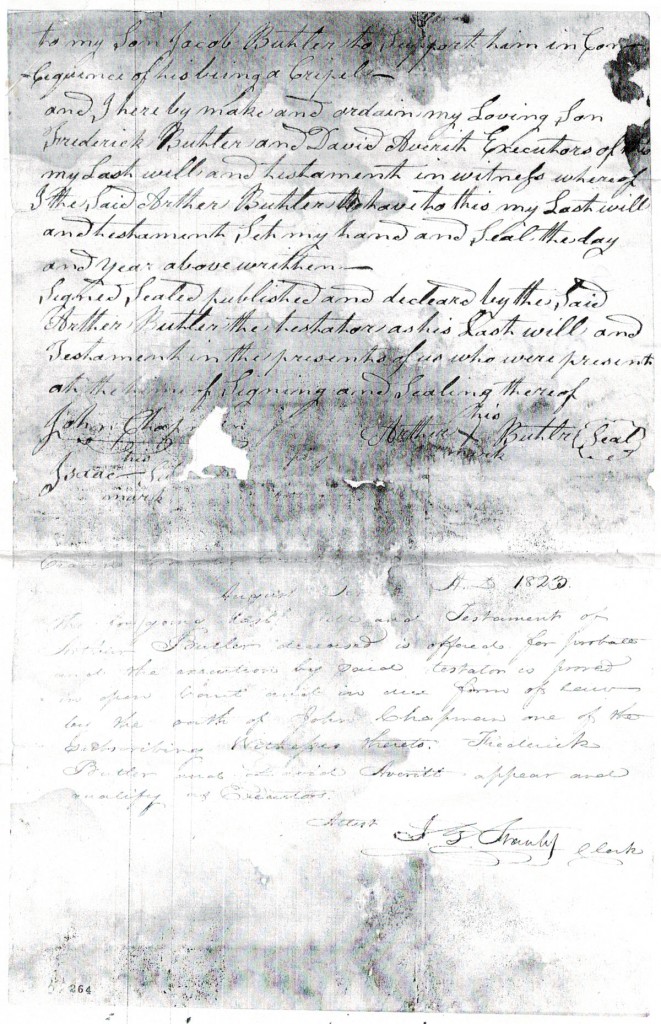 to my Son Jacob Buhler to Support him in Con
-Cequence of his being a Cripele
and I hereby make and ordain my Loving Son
Frederick Buhler and David Averitt Executors of
my Last will and testament in witness whereof
I the Said Arther Buhler have to this my Last will
and testament Set my hand and Seal the day
and year above written
Signed Sealed published and decleard by the Said
Arther Buhler the testator as his Last will and
Testament in the presents of us who were present
at the time of Signing and Sealing thereof
John Chap
his
Arther X Buhler (Seal)
mark
his
Isaac
mark
August A D 1823.
the forgoing last will and Testament of
Arthur Butler deceased is offered for probate
and the execution by said testator is proved
in open Court and in due form of law
by the oath of John Chapman one of the
subscribing Witnesses thereto. Frederick
Butler and David Averitt appear and
qualify as Executors.
Attest
Clerk
264